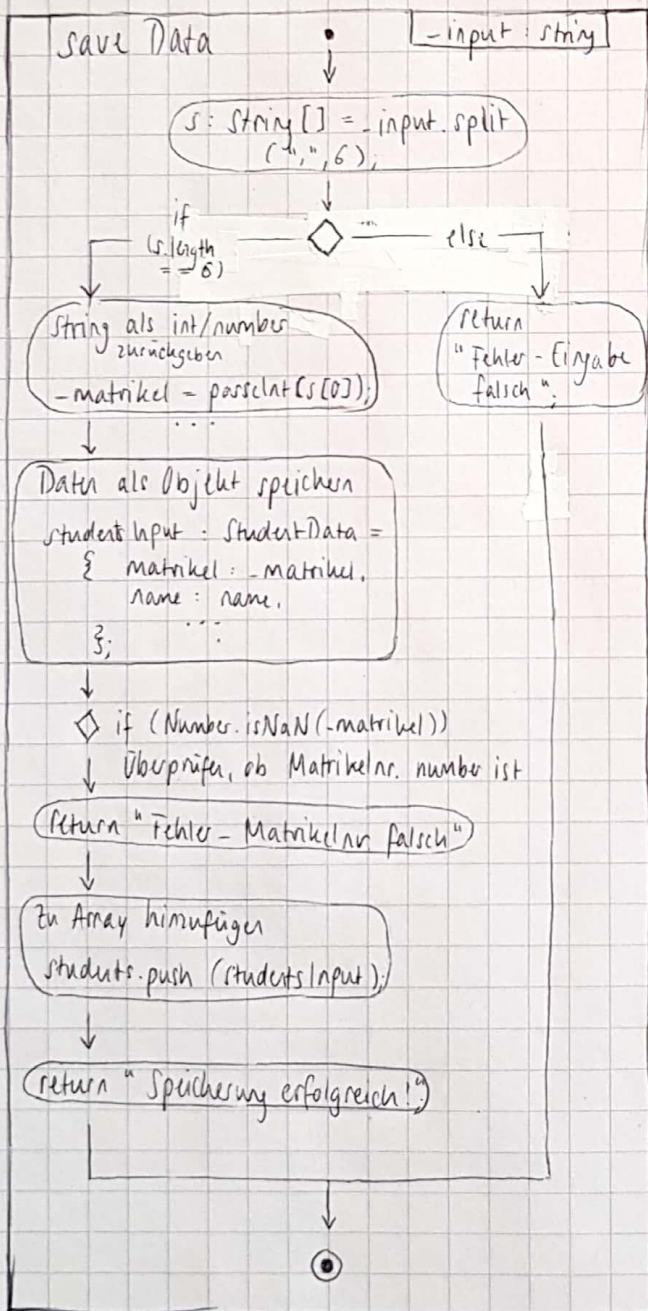 save Data
_input : string
s : String[] = _input.split
(",", 6);
if
(s.length
== 6)
else
String als int/number
zurückgeben
_matrikel = parseInt(s[0]);
...
return
"Fehler - Eingabe
falsch";
Daten als Objekt speichern
studentsInput : StudentData =
{ matrikel : _matrikel,
name : name,
...
};
if (Number.isNaN(_matrikel))
Überprüfen, ob Matrikelnr. number ist
return "Fehler - Matrikelnr falsch"
Zu Array hinzufügen
students.push (studentsInput);
return "Speicherung erfolgreich!";